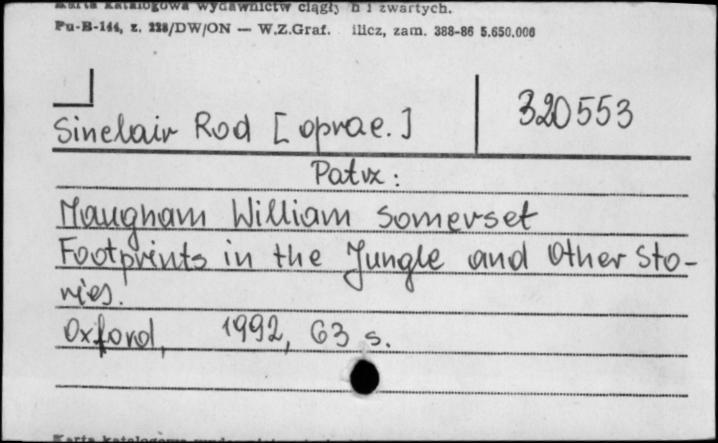 Karta katalogowa wydawnictw ciągł h i zwartych.
Pu-B-144, z. 228/DW/ON — W.Z.Graf. ilicz, zam. 388-86 5.650.000
Sinclair Rod [oprac.]
320553
Patrz:
Maugham William Somerset
Footprints in the Jungle and Other Sto-
ries.
Oxford, 1992, 63 s.
Karta katalogowa